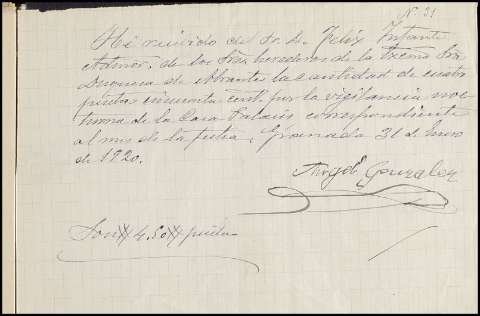 Nº 31
He recibido de Sr. D. Felix Infante
Admor. de los Sres herederos de la Excma Sra
Duquesa de Abrante la cantidad de cuatro
pesetas cincuenta cent. por la vigilancia noc
turna de la Casa Palacio correspondiente
al mes de la fecha. Granada 31 de Enero
de 1920.
Angel Gonzalez
Son # 4.50 # pesetas